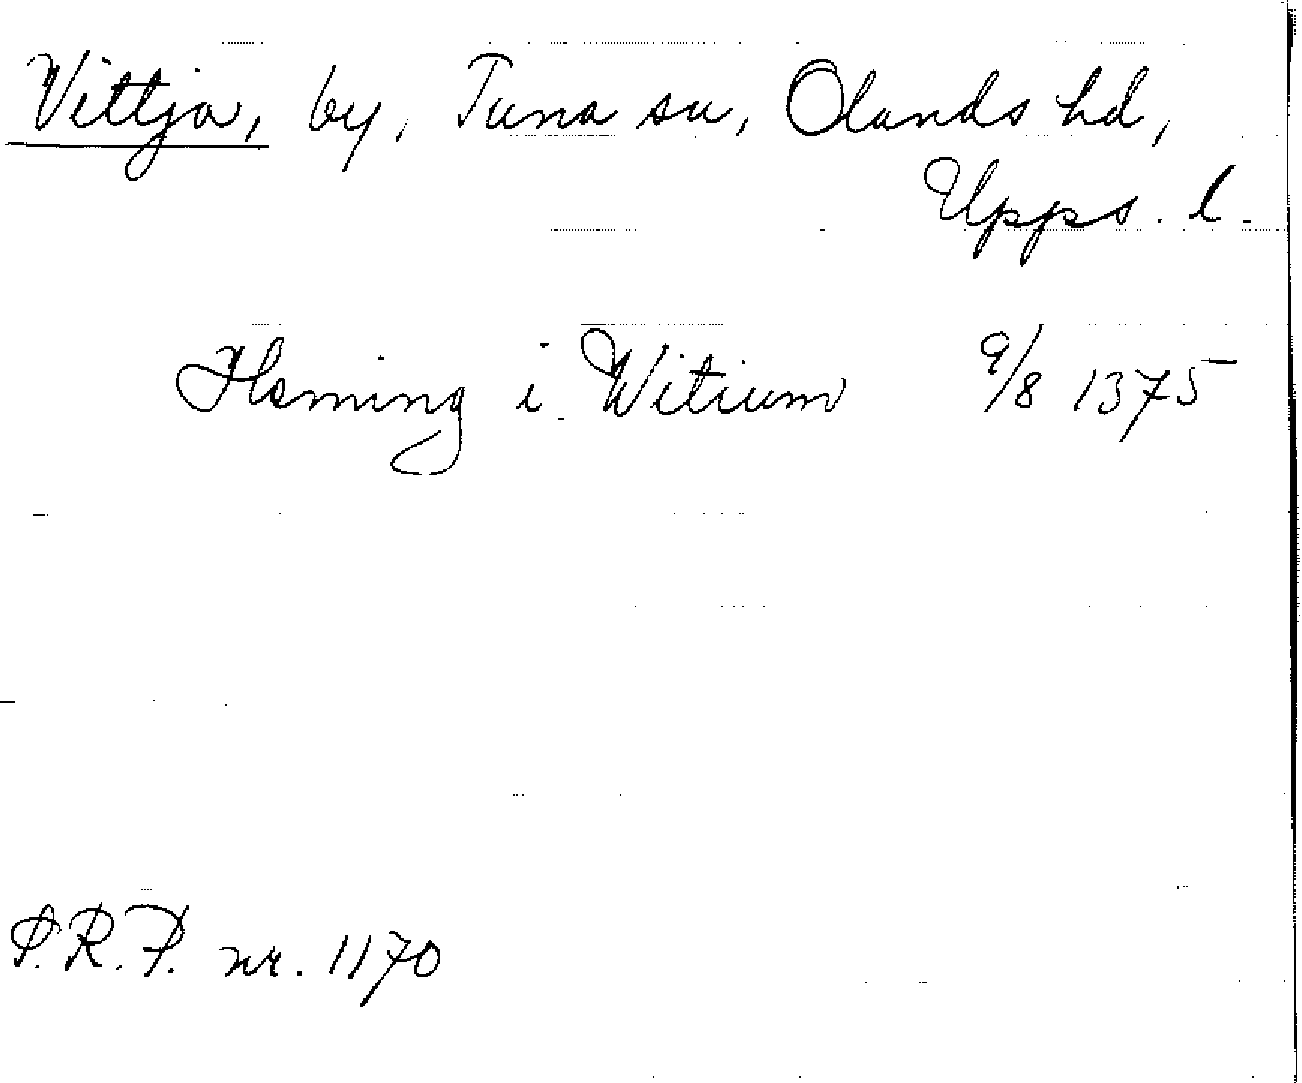 Vittja, by, Tuna sn, Olands hd,
Upps. l.
Heming i Witium 9/8 1375
S.R.P. nr. 1170